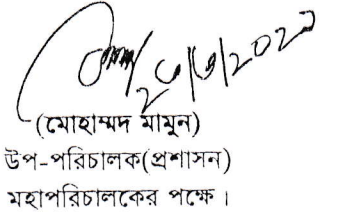 (মোহাম্মদ মামুন)
উপ-পরিচালক(প্রশাসন)
মহাপরিচালকের পক্ষে।